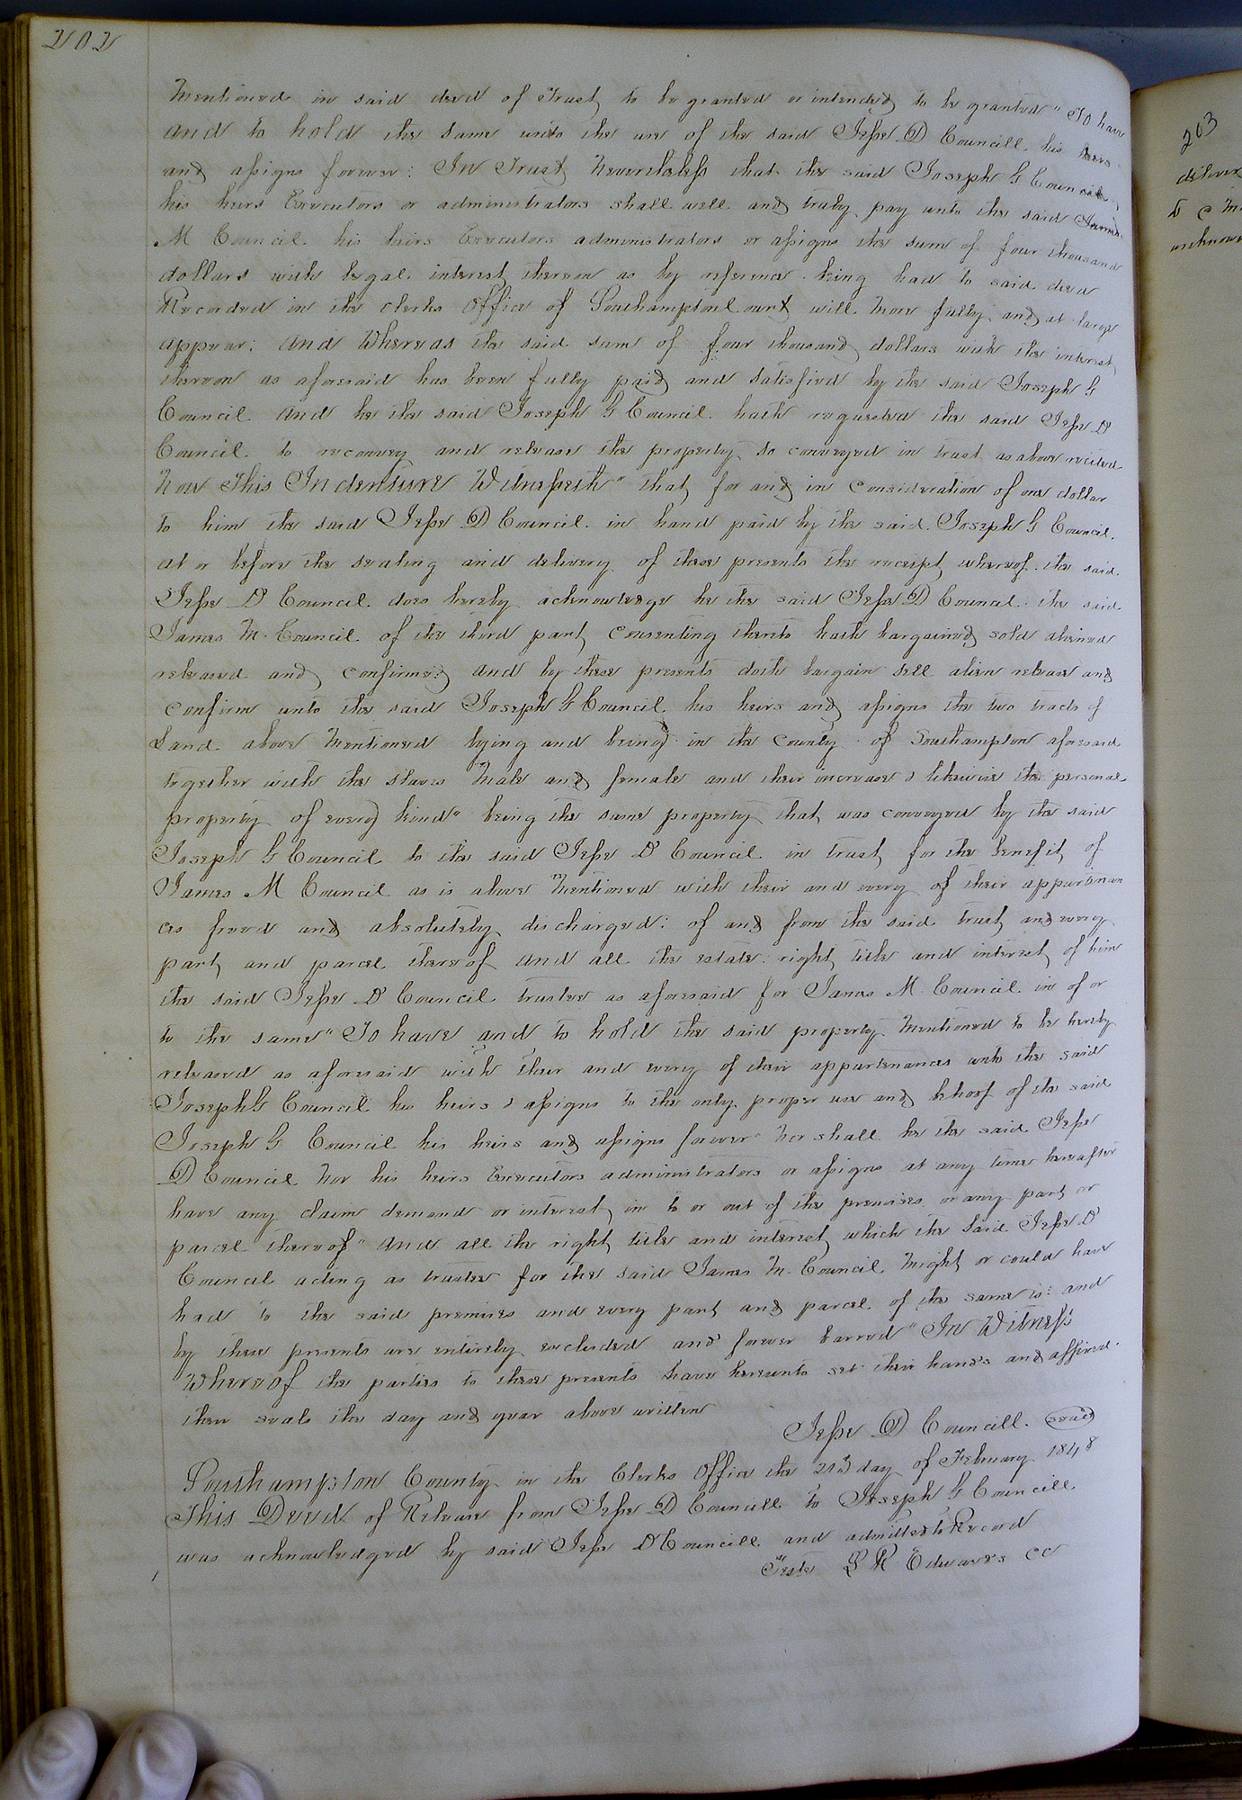 202
Mentioned in said deed of Trust to be granted or intended to be granted" To have
and to hold the same unto the use of the said Jesse D Councill his heirs
and assigns forever: In Trust Nevertheless that the said Joseph G Council
his heirs Executors or administrators shall well and truly pay unto the said James
M Council his heirs Executors administrators or assigns the sum of four thousand
dollars with legal interest thereon as by reference being had to said deed
Recorded in the clerks Office of Southampton Court will more fully and at large
appear: And Whereas the said sum of four thousand dollars with the interest
thereon as aforesaid has been fully paid and satisfied by the said Joseph G
Council And he the said Joseph G Council hath requested the said Jesse D
Council to reconvey and release the property so conveyed in trust as above recited
Now This Indenture Witnesseth" that for and in consideration of one dollar
to him the said Jesse D Council in hand paid by the said Joseph G Council
at or before the sealing and delivery of these presents the receipt whereof the said
Jesse D Council does hereby acknowledge he the said Jesse D Council the said
James M. Council of the third part Consenting thereto hath bargained sold aliened
released and confirmed and by these presents doth bargain sell alien release and
confirm unto the said Joseph G Council his heirs and assigns the two tracts of
Land above Mentioned lying and being in the County of Southampton aforesaid
together with the slaves Male and female and their increase & likewise the personal
property of every kind" being the same property that was conveyed by the said
Joseph G Council to the said Jesse D Council in trust for the benefit of
James M Council as is above Mentioned with their and every of their appurtenan
ces freed and absolutely discharged: of and from the said trust and every
part and parcel thereof And all the estate right title and interest of him
the said Jesse D Council trustee as aforesaid for James M Council in of or
to the same" To have and to hold the said property Mentioned to be hereby
released as aforesaid with their and every of their appurtenances unto the said
Joseph G Council his heirs & assigns to the only proper use and behoof of the said
Joseph G Council his heirs and assigns forever" Nor shall he the said Jesse
D Council Nor his heirs Executors administrators or assigns at any time hereafter
have any claim demand or interest in to or out of the premises or any part or
parcel thereof" And all the right title and interest which the said Jesse D
Council acting as trustee for the said James M. Council Might or could have
had to the said premises and every part and parcel of the same is: and
by these presents are entirely excluded and forever barred" In Witness
Whereof the parties to these presents have hereunto set their hands and affixed
their seals the day and year above written
Jesse D Councill. seal
Southampton County in the Clerks Office the 21st day of February 1848
This Deed of Release from Jesse D Councill to Joseph G Councill
was acknowledged by said Jesse D Councill and admitted to Record
Teste L R Edwards CC
203
deliver
to